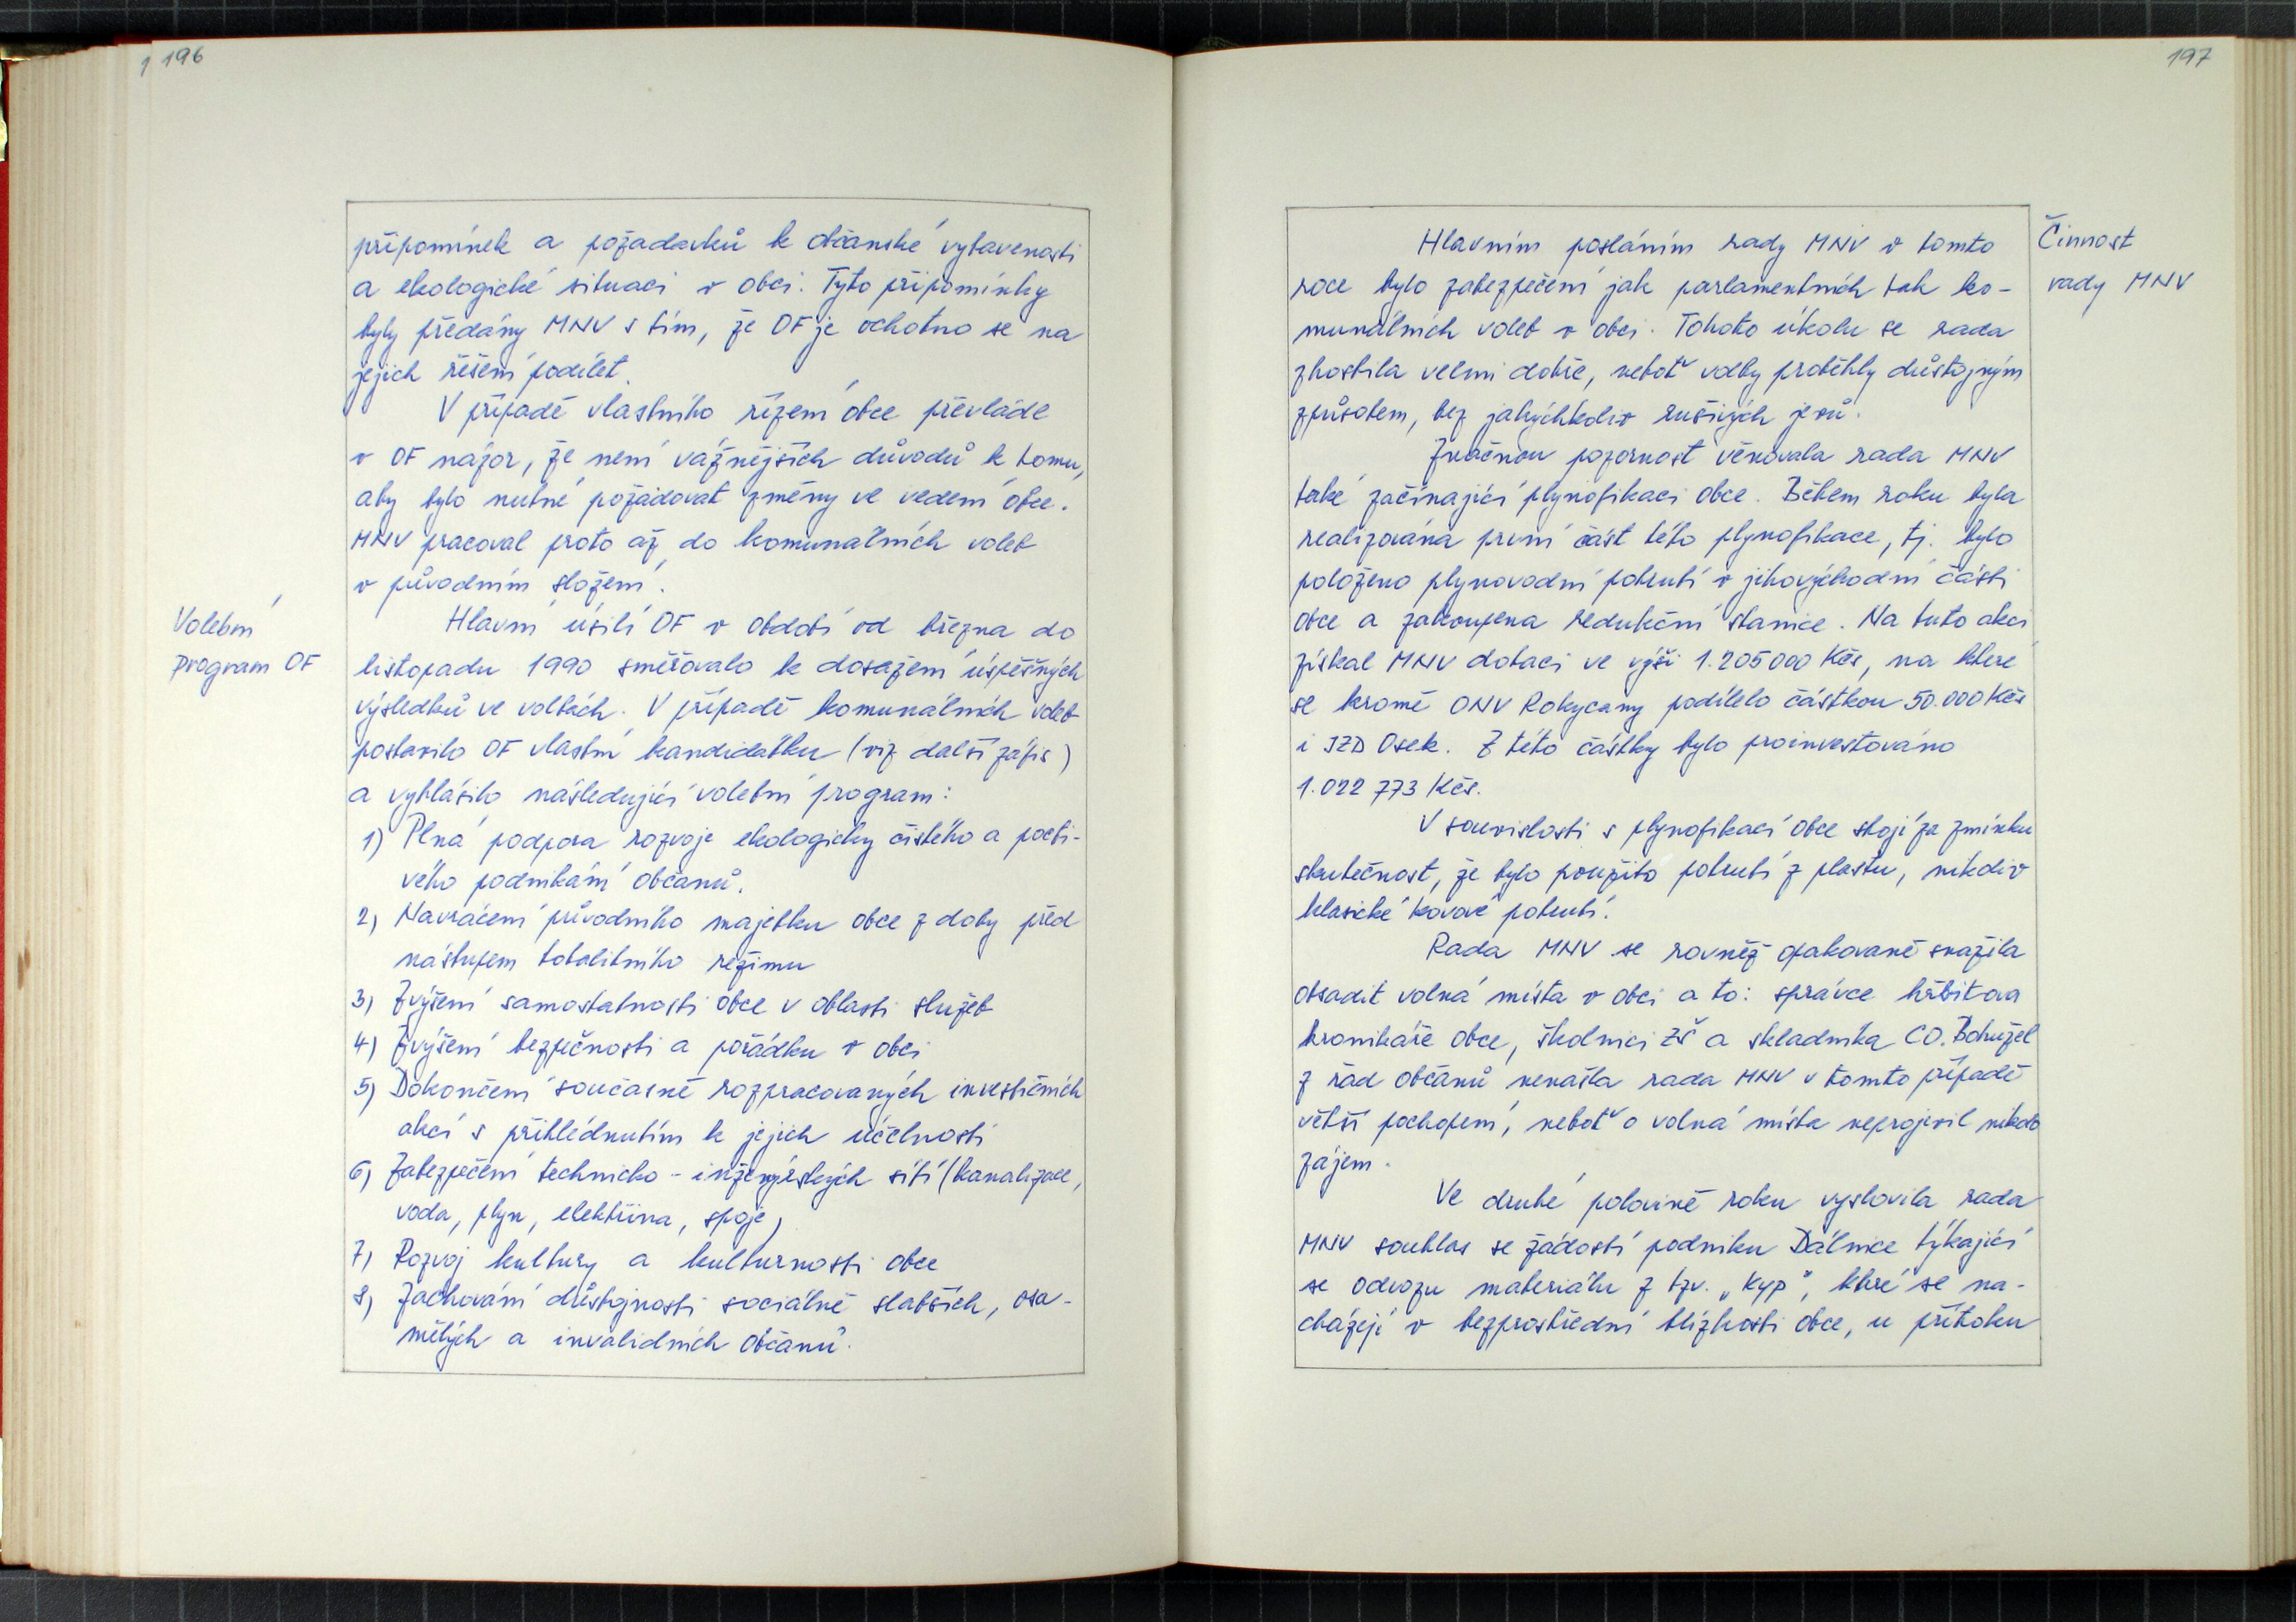 1 196
připomínek a požadavků k občanské vybavenosti
a ekologické situaci v obci. Tyto připomínky
byly předány MNV s tím, že OF je ochotno se na
jejich řešení podílet.
V případě vlastního řízení obce převládl
v OF názor, že není vážnějších důvodů k tomu,
aby bylo nutné požadovat změny ve vedení obce.
MNV pracoval proto až do komunálních voleb
v původním složení.
Volební
program OF
Hlavní úsilí OF v období od března do
listopadu 1990 směřovalo k dosažení úspěšných
výsledků ve volbách. V případě komunálních voleb
postavilo OF vlastní kandidátku (viz další zápis)
a vyhlásilo následující volební program:
1) Plná podpora rozvoje ekologicky čistého a pocti-
vého podnikání občanů.
2) Navrácení původního majetku obce z doby před
nástupem totalitního režimu
3) Zvýšení samostatnosti obce v oblasti služeb
4) Zvýšení bezpečnosti a pořádku v obci
5) Dokončení současně rozpracovaných investičních
akcí s přihlédnutím k jejich účelnosti
6) Zabezpečení technicko-inženýrských sítí (kanalizace,
voda, plyn, elektřina, spoje)
7) Rozvoj kultury a kulturnosti obce
8) Zachování důstojnosti sociálně slabších, osa-
mělých a invalidních občanů.
197
Činnost
rady MNV
Hlavním posláním rady MNV v tomto
roce bylo zabezpečení jak parlamentních tak ko-
munálních voleb v obci. Tohoto úkolu se rada
zhostila velmi dobře, neboť volby proběhly důstojným
způsobem, bez jakýchkoliv rušivých jevů.
Značnou pozornost věnovala rada MNV
také začínající plynofikaci obce. Během roku byla
realizována první část této plynofikace, tj. bylo
položeno plynovodní potrubí v jihovýchodní části
obce a zakoupena redukční stanice. Na tuto akci
získal MNV dotaci ve výši 1.205000 Kčs, na které
se kromě ONV Rokycany podílelo částkou 50.000 Kčs
i JZD Osek. Z této částky bylo proinvestováno
1.022 773 Kčs.
V souvislosti s plynofikací obce stojí za zmínku
skutečnost, že bylo použito potrubí z plastu, nikoliv
klasické kovové potrubí.
Rada MNV se rovněž opakovaně snažila
obsadit volná místa v obci a to: správce hřbitova
kronikáře obce, školnici ZŠ a skladníka CO. Bohužel
z řad občanů nenašla rada MNV v tomto případě
větší pochopení, neboť o volná místa neprojevil nikdo
zájem.
Ve druhé polovině roku vyslovila rada
MNV souhlas se žádostí podniku Dálnice týkající
se odvozu materiálu z tzv. „Kyp", které se na-
cházejí v bezprostřední blízkosti obce, u přítoku